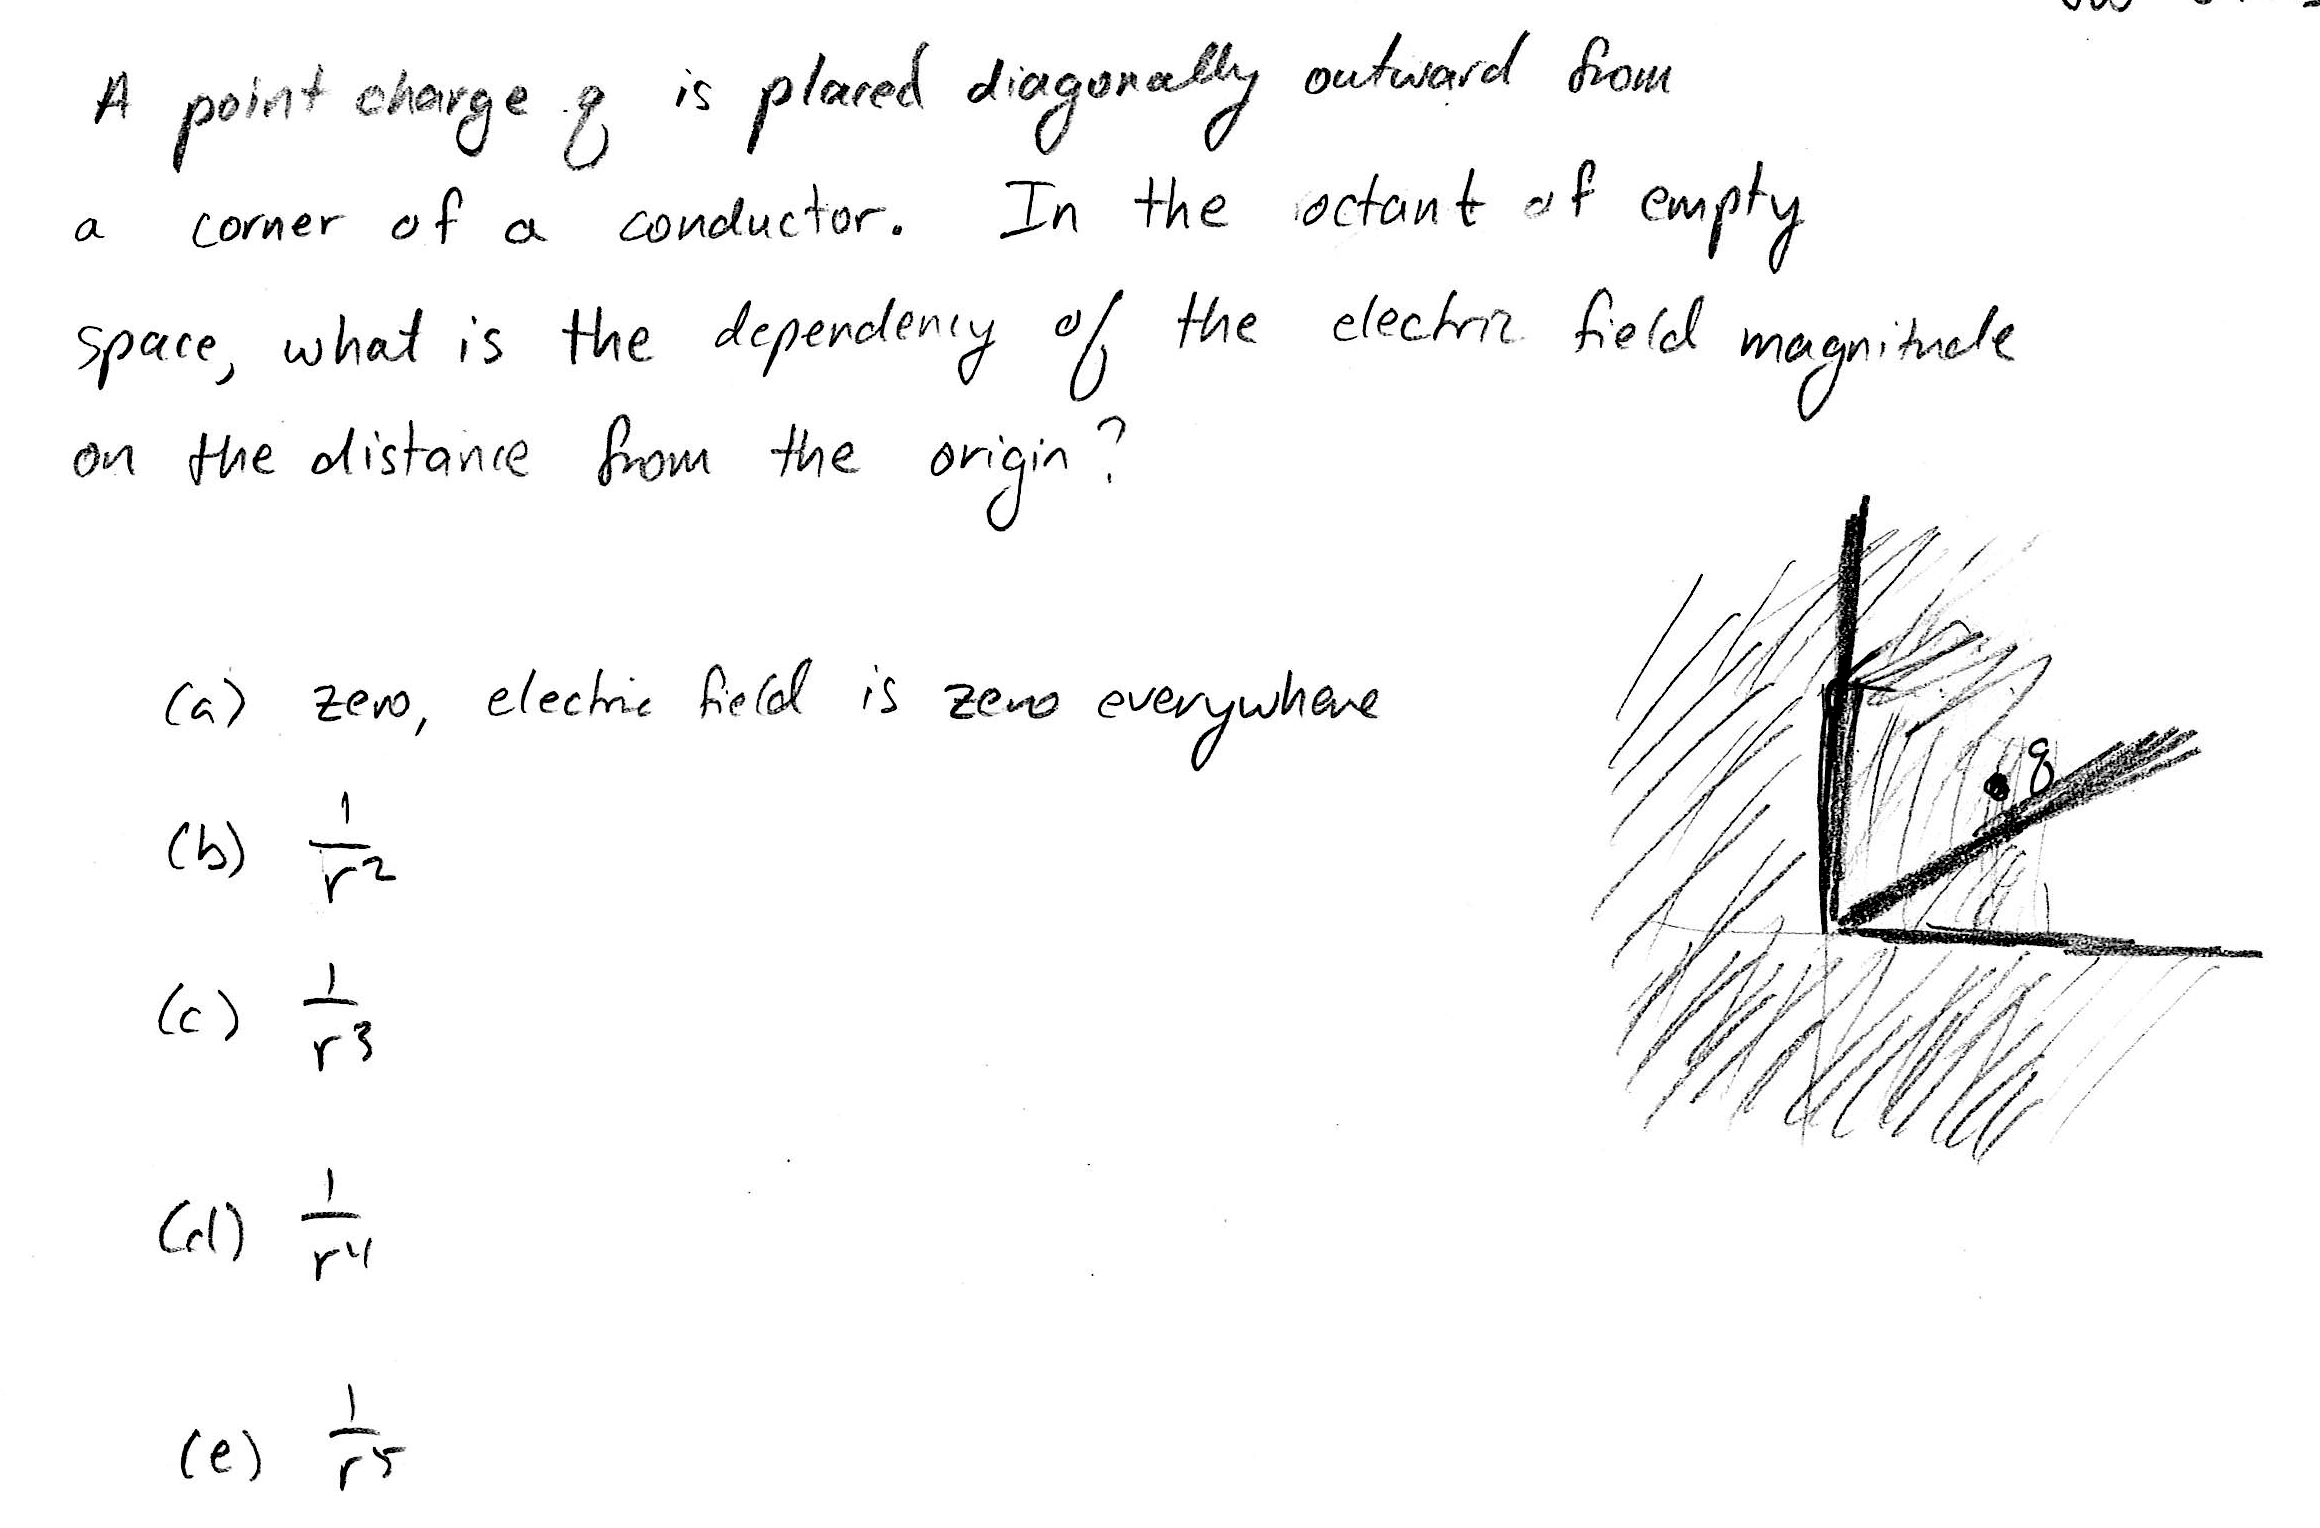 A point charge q is placed diagonally outward from
a corner of a conductor. In the octant of empty
space, what is the dependency of the electric field magnitude
on the distance from the origin?
(a) zero, electric field is zero everywhere
q
(b) 1/r²
(c) 1/r³
(d) 1/r⁴
(e) 1/r⁵